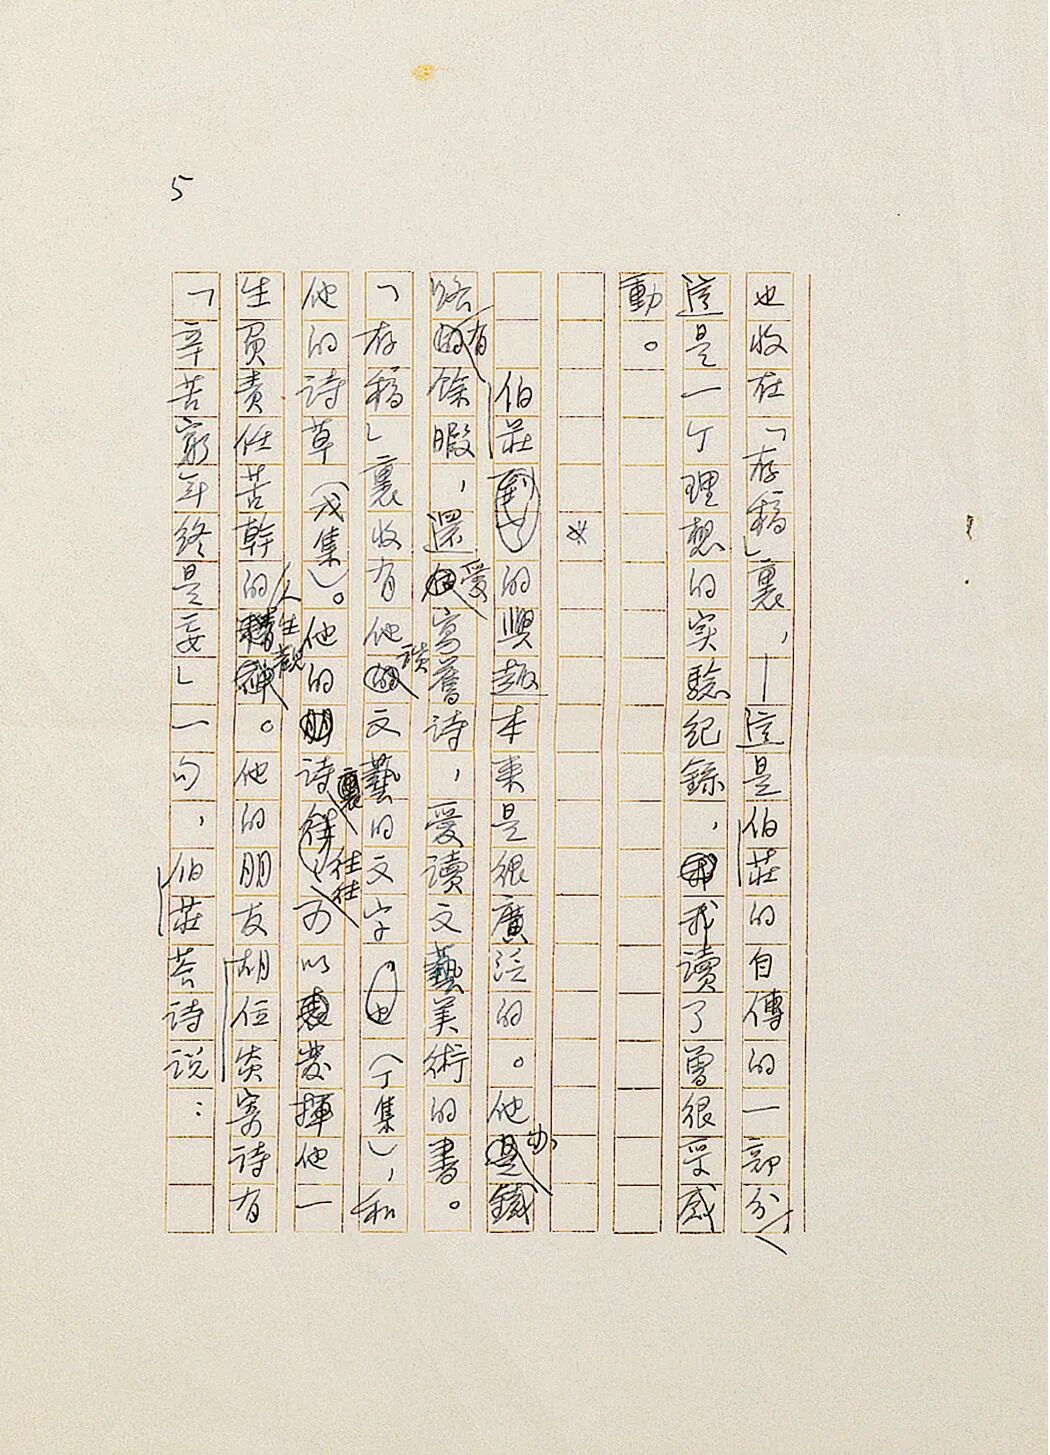 5
也收在「存稿」裏，—這是伯莊的自傳的一部分，
這是一个理想的实驗紀錄，我讀了曾很受感
動。
※
伯莊的興趣本來是很廣泛的。他办鐵
路有餘暇，還爱寫舊诗，爱讀文藝美術的書。
「存稿」裏收有他談文藝的文字（丁集），和
他的诗草（戊集）。他的诗裏往往可以發揮他一
生負責任苦幹的人生觀。他的朋友胡位炎寄诗有
「辛苦窮年終是妄」一句，伯莊答诗説：